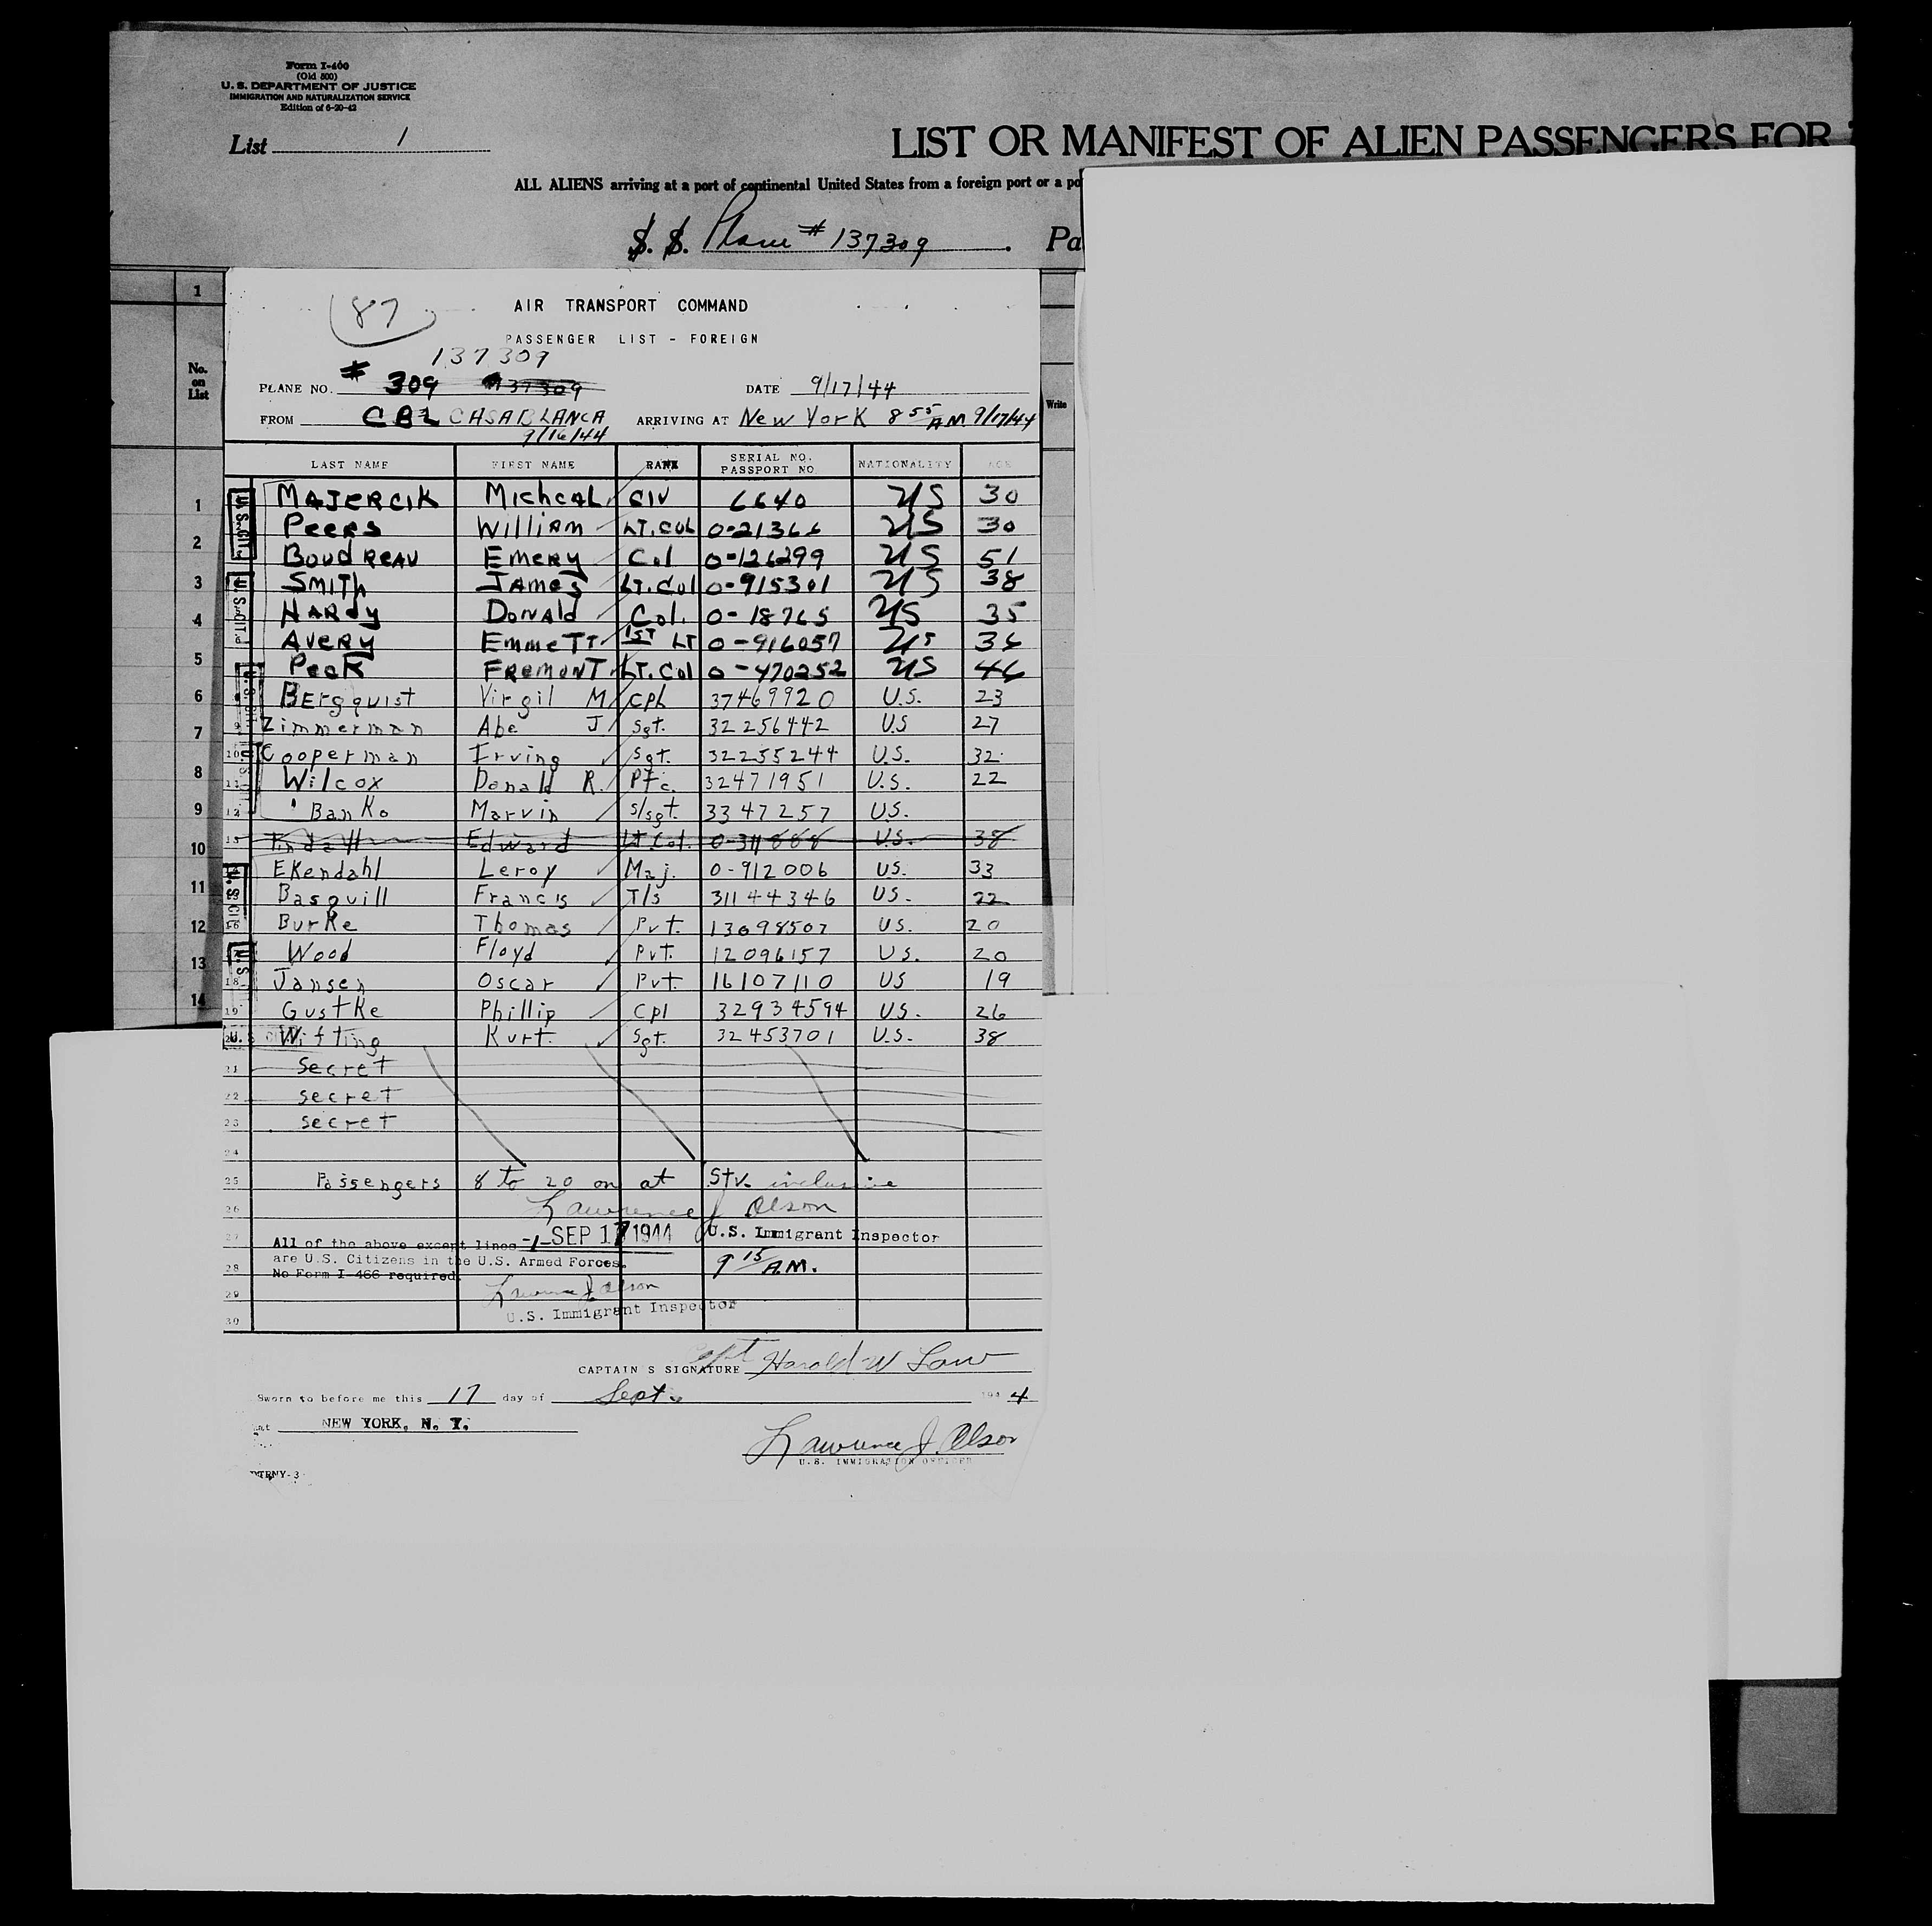 Form I-400
(Old 500)
U. S. DEPARTMENT OF JUSTICE
IMMIGRATION AND NATURALIZATION SERVICE
Edition of 6-20-42
List 1
LIST OR MANIFEST OF ALIEN PASSENGERS FOR
ALL ALIENS arriving at a port of continental United States from a foreign port or a po
S. S. Plane # 137309 . Pa
87
AIR TRANSPORT COMMAND
PASSENGER LIST - FOREIGN
137309
PLANE NO. # 309 137309 DATE 9/17/44
FROM CBL CASABLANCA ARRIVING AT New York 8 55 AM 9/17/44
9/16/44
No. on List
Write
LAST NAME FIRST NAME RANK SERIAL NO. PASSPORT NO. NATIONALITY AGE
MAJERCIK MicheAL CIV 6640 US 30
Peers William LT. COL 0-21366 US 30
Boudreau Emery Col 0-126299 US 51
Smith James Lt. Col 0-915301 US 38
Hardy Donald Col. 0-18765 US 35
Avery Emmett 1ST LT 0-916057 US 36
Peek FREMONT LT. Col 0-470252 US 46
Bergquist Virgil M Cpl 37469920 U.S. 23
Zimmerman Abe J Sgt. 32256442 U.S 27
10 Cooperman Irving Sgt. 32255244 U.S. 32
11 Wilcox Donald R. Pfc. 32471951 U.S. 22
12 Banko Marvin S/Sgt. 3347257 U.S.
13 Edward Lt. Col. 0-311888 U.S. 38
Ekendahl Leroy Maj. 0-912006 US. 33
Basquill Francis T/5 31144346 US. 22
16 Burke Thomas Pvt. 13098507 US. 20
Wood Floyd Pvt. 12096157 US. 20
18 Jansen Oscar Pvt. 16107110 US 19
19 Gustke Phillip Cpl 32934594 US. 26
20 Witting Kurt Sgt. 32453701 U.S. 38
21 Secret
22 Secret
23 Secret
24
25 Passengers 8 to 20 on at Stv. inclusive
26 Lawrence J Olson
27 All of the above except lines -1- SEP 17 1944 U.S. Immigrant Inspector
are U.S. Citizens in the U.S. Armed Forces. 9 15 A.M.
28 No Form I-466 required.
29 Lawrence J Olson
30 U.S. Immigrant Inspector
CAPTAIN'S SIGNATURE Capt Harold W Law
Sworn to before me this 17 day of Sept. 1944
at NEW YORK, N. Y.
Lawrence J. Olson
U.S. IMMIGRATION OFFICER
1
1
2
3
4
5
6
7
8
9
10
11
12
13
14